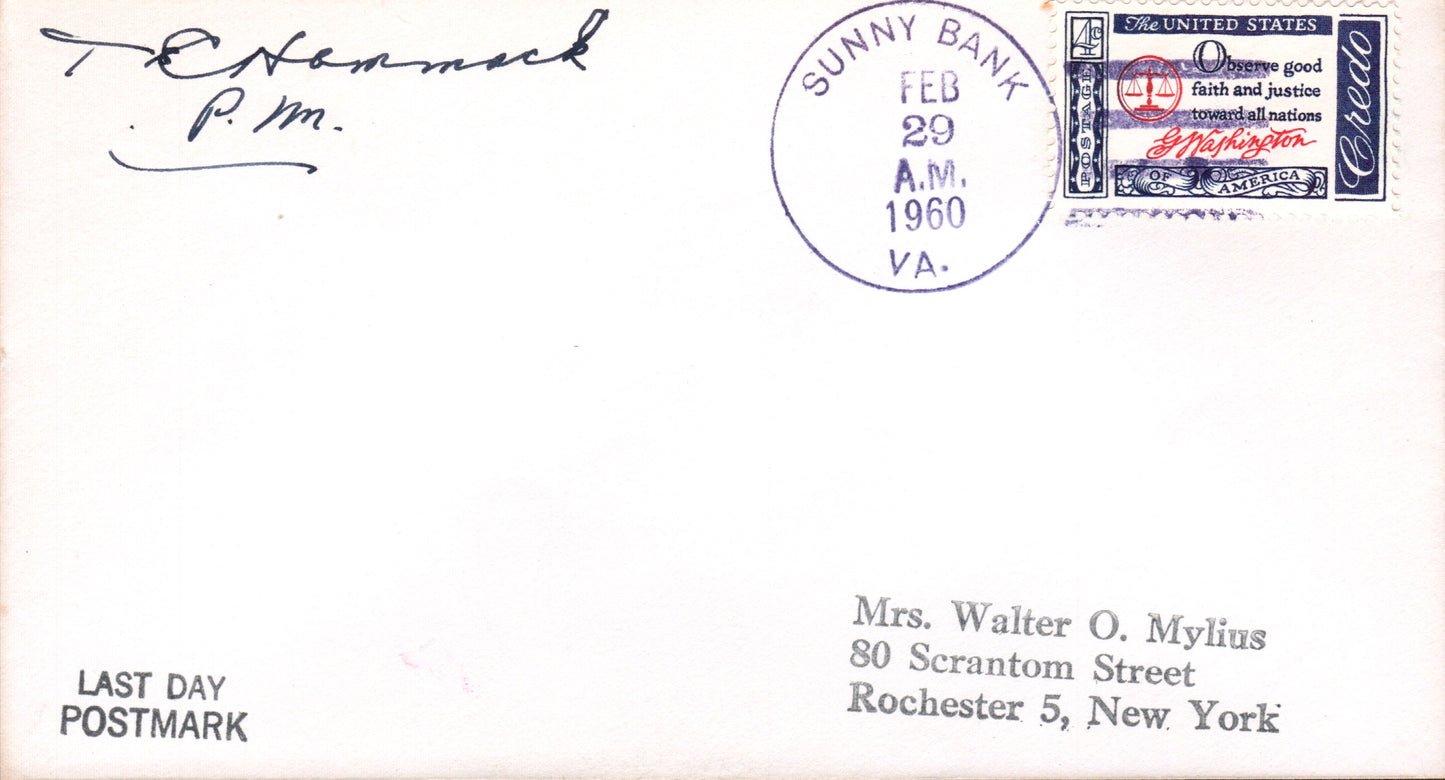 T E Hammack
P. M.
SUNNY BANK
FEB
29
A.M.
1960
VA.
4¢
POSTAGE
The UNITED STATES
Observe good
faith and justice
toward all nations
G Washington
OF AMERICA
Credo
LAST DAY
POSTMARK
Mrs. Walter O. Mylius
80 Scrantom Street
Rochester 5, New York